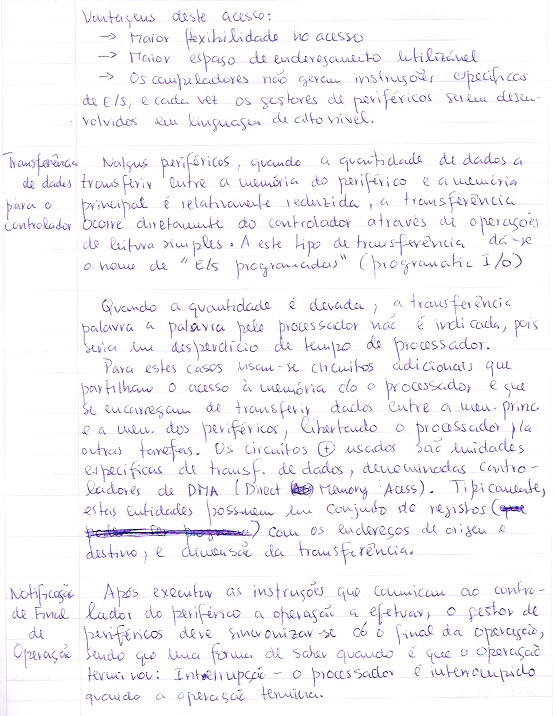 Vantagens deste acesso:
→ Maior flexibilidade no acesso
→ Maior espaço de endereçamento utilizável
→ Os compiladores não geram instruções específicas
de E/S, e cada vez os gestores de periféricos serem desen-
volvidos em linguagem de alto nível.
Transferência
de dados
para o
controlador
Nalguns periféricos, quando a quantidade de dados a
transferir entre a memória do periférico e a memória
principal é relativamente reduzida, a transferência
ocorre diretamente do controlador através de operações
de leitura simples. A este tipo de transferência dá-se
o nome de "E/S programadas" (programatic I/O)
Quando a quantidade é elevada, a transferência
palavra a palavra pelo processador não é indicada, pois
seria um desperdício de tempo de processador.
Para estes casos usam-se circuitos adicionais que
partilham o acesso à memória c/o processador e que
se encarregam de transferir dados entre a mem. princ
e a mem. dos periféricos, libertando o processador p/a
outras tarefas. Os circuitos + usados são unidades
específicas de transf. de dados, denominadas contro-
ladores de DMA (Direct Memory Acess). Tipicamente,
estas entidades possuem um conjunto de registos (
) com os endereços de origem e
destino, e dimensão da transferência.
Notificação
de Final
de
Operação
Após executar as instruções que comunicam ao contro-
lador do periférico a operação a efetuar, o gestor de
periféricos deve sincronizar-se c/o final da operação,
sendo que uma forma de saber quando é que o operação
terminou: Interrupção - o processador é interrompido
quando a operação termina.